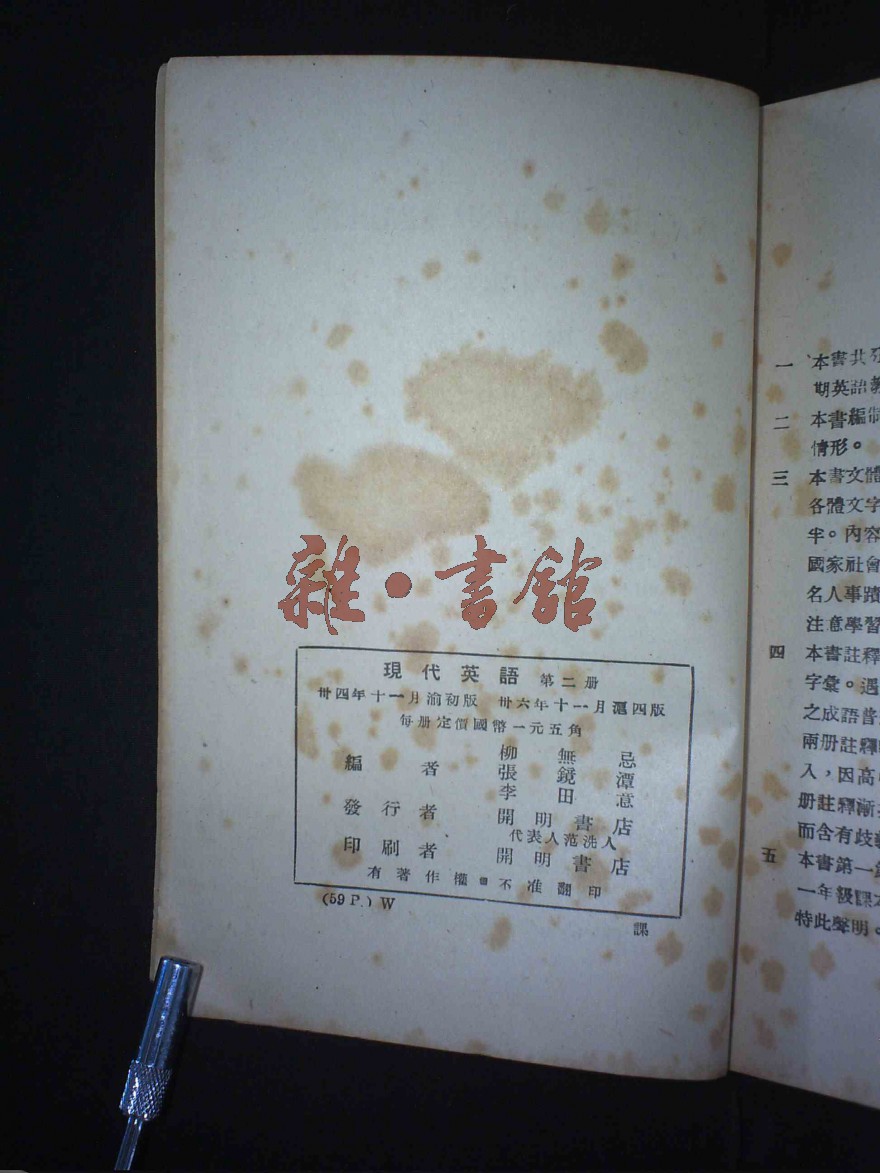 雜·書館
現代英語 第二册
卅四年十一月渝初版 卅六年十一月滬四版
每册定價國幣一元五角
編者 柳無忌
張鏡潭
李田意
發行者 開明書店
代表人范洗人
印刷者 開明書店
有著作權不准翻印
(59 P.) W
課
一 本書共
期英語
二 本書編
情形。
三 本書文體
各體文字
半。內容
國家社會
名人事蹟
注意學習
四 本書註釋
字彙。遇
之成語
兩册註釋
入,因高
册註釋漸
而含有歧
五 本書第一
一年級課本
特此聲明。